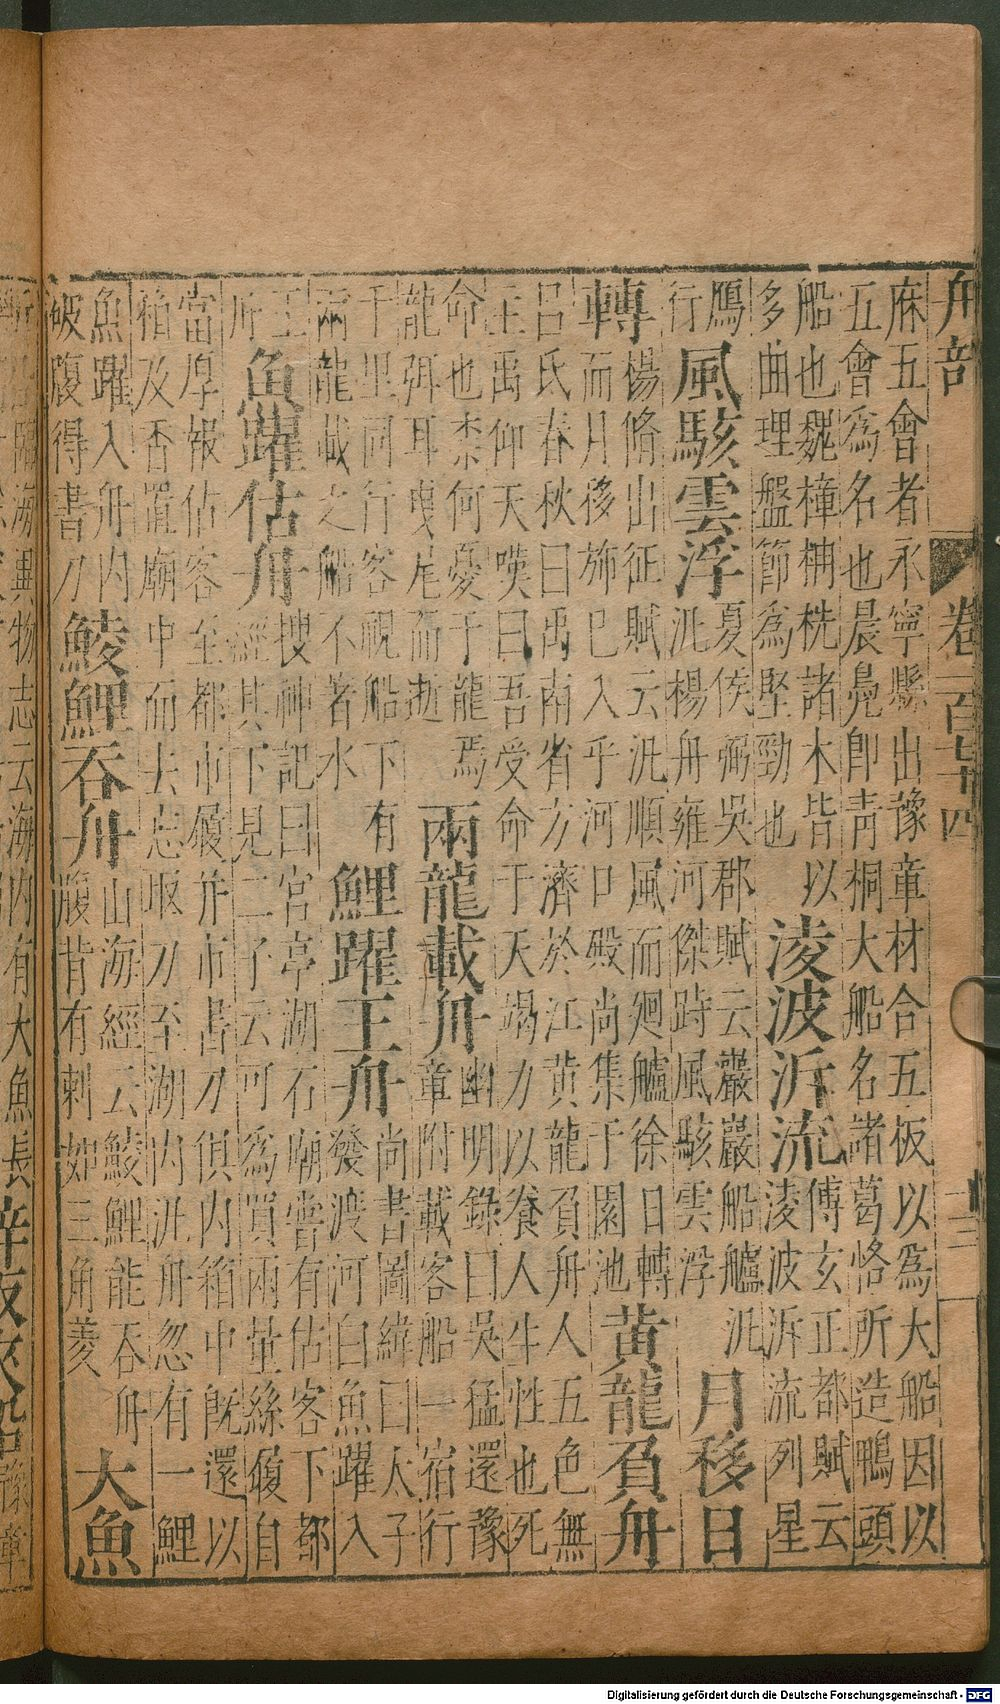 舟部 卷一百廿四 三
庥五會者永寧縣出豫章材合五板以為大船因以
五會為名也晨鳧即青桐大船名諸葛恪所造鴨頭
船也魏樟楠桄諸木皆以
多曲理盤節為堅勁也
凌波泝流
傅玄正都賦云
凌波泝流列星
鴈
行
風駭雲浮
夏侯弼吳郡賦云巖巖船艫汎
汎楊舟雍河傑跱風駭雲浮
月移日
轉
楊脩出征賦云汎順風而迴艫徐日轉
而月移斾已入乎河口殿尚集于園池
黃龍負舟
呂氏春秋曰禹南省方濟於江黃龍負舟人五色無
主禹仰天嘆曰吾受命于天竭力以養人生性也死
命也柰何憂于龍焉
龍弭耳曳尾而逝
兩龍載舟
幽明錄曰吳猛還豫
章附載客船一宿行
千里同行客視船下有
兩龍載之船不著水
鯉躍王舟
尚書圖緯曰太子
發渡河白魚躍入
王
舟
魚躍估舟
搜神記曰宮亭湖石廟嘗有估客下都
經其下見二子云可為買兩量絲履自
當厚報估客至都市履并市書刀俱內箱中既還以
箱及香置廟中而去忘取刀至湖內汎舟忽有一鯉
魚躍入舟內
破腹得書刀
鯪鯉吞舟
山海經云鯪鯉能吞舟
腹背有刺如三角菱
大魚
臨海異物志云海內有大魚長
豫章
Digitalisierung gefördert durch die Deutsche Forschungsgemeinschaft - DFG